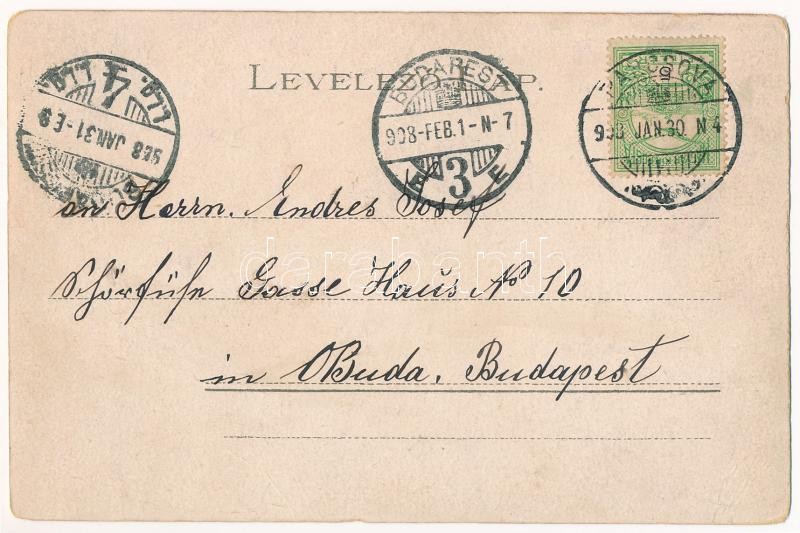 LEVELEZŐ-LAP.
BUDAPEST
908-FEB.1-N-7
3
908 JAN.30 N 4
908 JAN 31-E 9
an Herrn. Andres Josef
Schörfuße Gasse Haus No 10
in OBuda. Budapest
darabanth